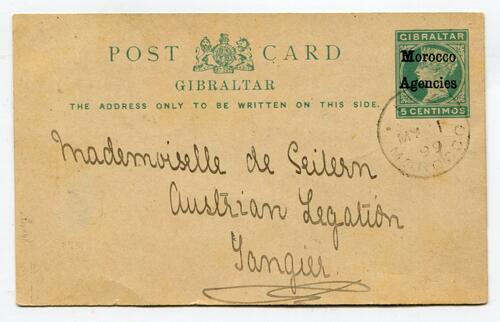 POST CARD
GIBRALTAR
THE ADDRESS ONLY TO BE WRITTEN ON THIS SIDE.
GIBRALTAR
Morocco
Agencies
5 CENTIMOS
MY 1
99
MOROCCO
Mademoiselle de Seilern
Austrian Legation
Tangier.